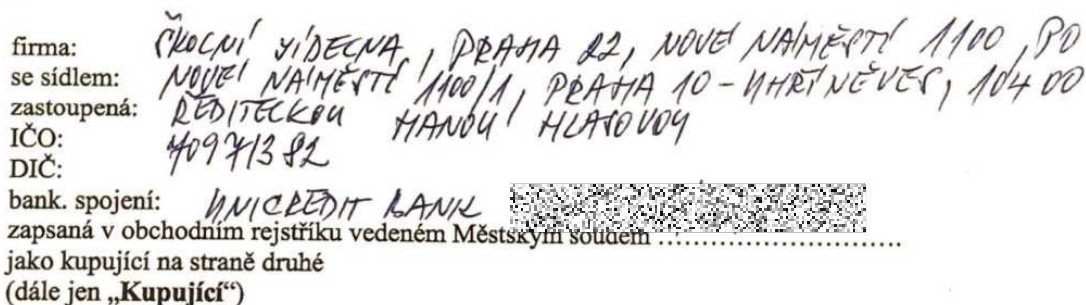 firma: ŠKOLNÍ JÍDELNA, PRAHA 22, NOVÉ NÁMĚSTÍ 1100, PO
se sídlem: NOVÉ NÁMĚSTÍ 1100/1, PRAHA 10 - UHŘÍNĚVES, 104 00
zastoupená: ŘEDITELKOU HANOU HLASOVOU
IČO: 70971382
DIČ:
bank. spojení: UNICREDIT BANK
zapsaná v obchodním rejstříku vedeném Městským soudem ………………………….
jako kupující na straně druhé
(dále jen „Kupující“)